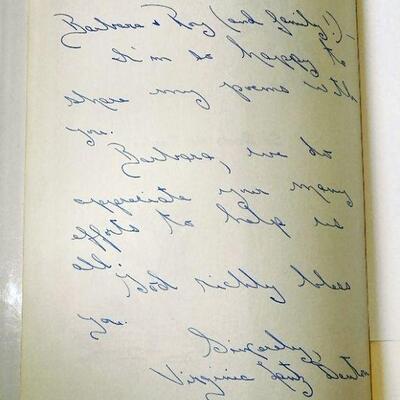 Barbara & Roy (and family!),
I'm so happy to
share my poems with
you.
Barbara, we do
appreciate your many
efforts to help us
all.
God richly bless
you.
Sincerely,
Virginia Denton